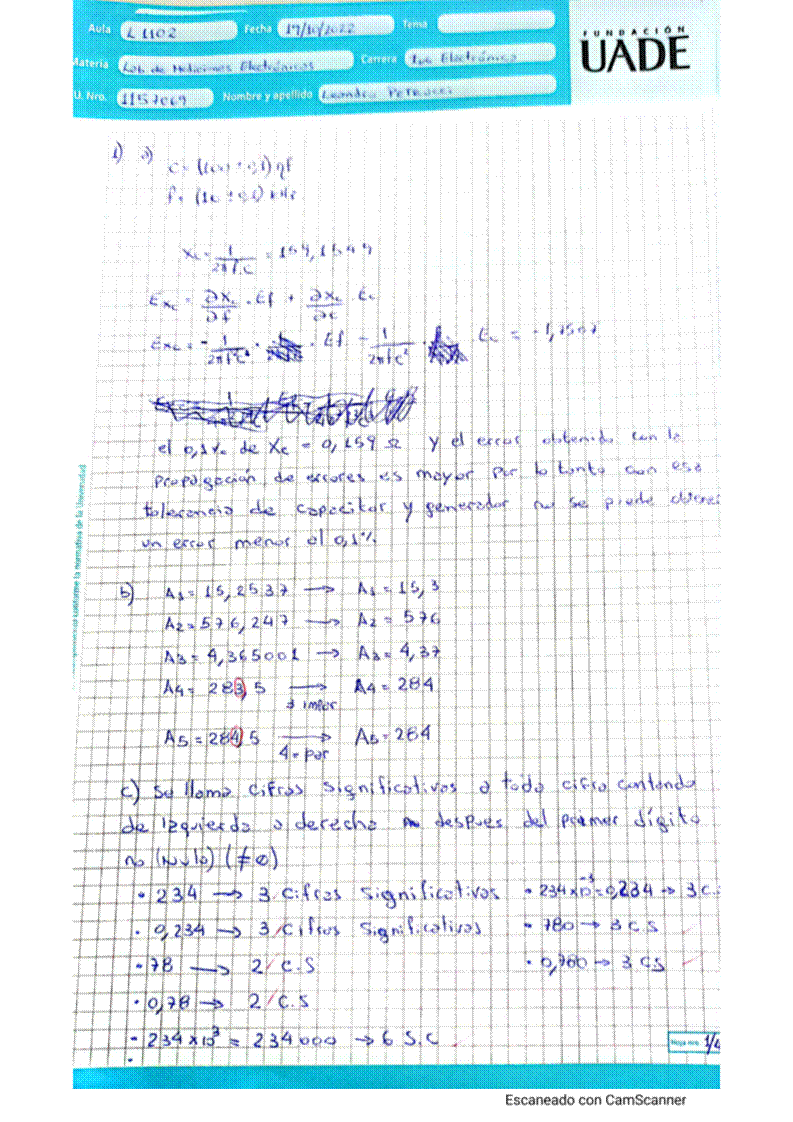 Aula L 1102 Fecha 19/10/2022 Tema
FUNDACIÓN
UADE
Materia Lab de Mediciones Electrónicas Carrera Ing Electrónica
LU. Nro. 1157069 Nombre y apellido Leandro Petrucci
1) a) C = (100 ± 0,1) ηf
f = (10 ± 0,1) kHz
Xc = 1/2πf.c = 159,1549
Exc = ∂Xc/∂f . Ef + ∂Xc/∂c . Ec
Exc = - 1/2πf²c . Ef - 1/2πfc² . Ec = -1,7507
el 0,1% de Xc = 0,159 Ω y el error obtenido con la
propagación de errores es mayor por lo tanto con esa
tolerancia de capacitor y generador no se puede obtener
un error menor al 0,1%
b) A1 = 15,2537 → A1 = 15,3
A2 = 576,247 → A2 = 576
A3 = 4,365001 → A3 = 4,37
A4 = 283,5 → A4 = 284
3 impar
A5 = 284,5 → A5 = 284
4 = par
c) Se llama cifras significativas a toda cifra contando
de izquierda a derecha despues del primer dígito
no (Nulo) (≠0)
• 234 → 3 cifras significativas • 234x10⁻³=0,234 → 3 c.s
• 0,234 → 3 cifras significativas • 780 → 3 C.S
• 78 → 2 C.S • 0,780 → 3 CS
• 0,78 → 2 C.S
• 234 x 10³ = 234000 → 6 S.C
Hoja Nro. 1/4
Escaneado con CamScanner